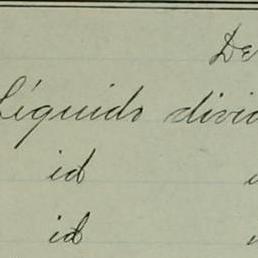 De
Líquido divid
id
id